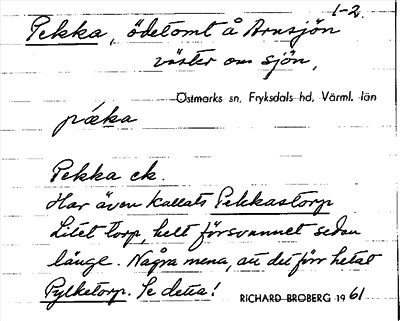 1-2.
Pekka, ödetomt å Arnsjön
väster om sjön,
Östmarks sn, Fryksdals hd, Värml. län
pæka
Pekka ek.
Har även kallats Pekkastorp
Litet torp, helt försvunnet sedan
länge. Några mena, att det förr hetat
Pylketorp. Se detta!
RICHARD BROBERG 1961